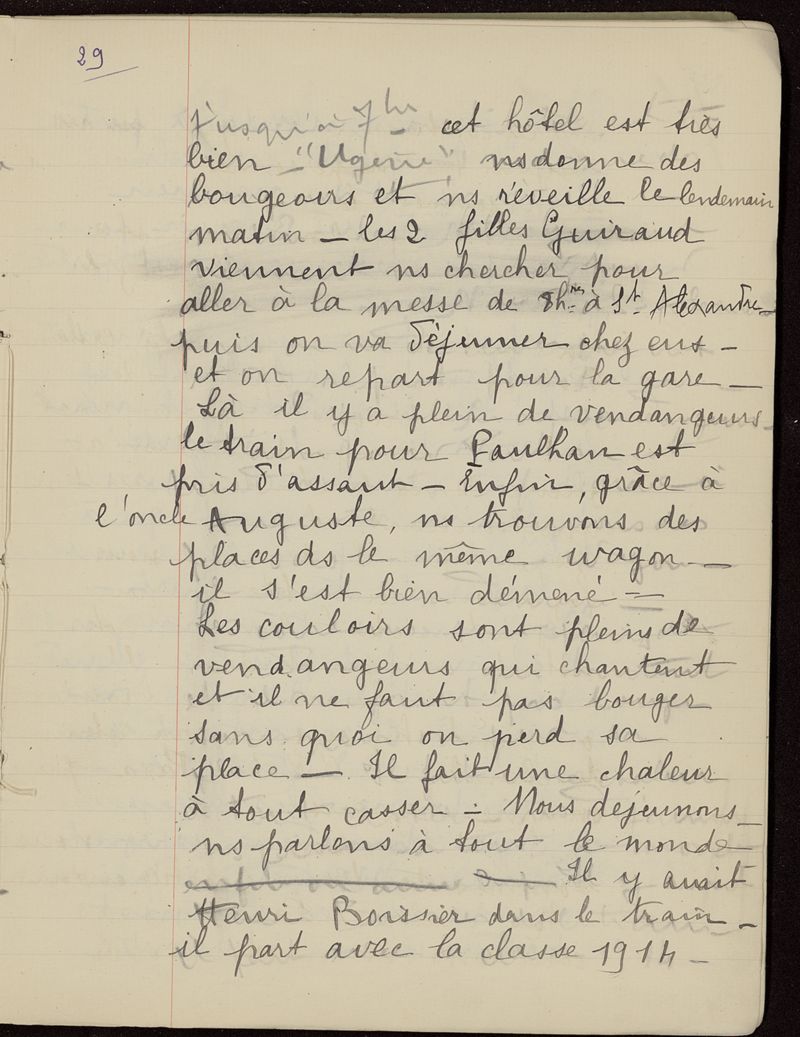 29
jusqu'à 7hrs cet hôtel est très
bien "Ugenie" ns donne des
bougeoirs et ns réveille le lendemain
matin — les 2 filles Guiraud
viennent ns chercher pour
aller à la messe de 8hres à St. Alexandre —
puis on va déjeuner chez eux —
et on repart pour la gare —
Là il y a plein de vendangeurs —
le train pour Paulhan est
pris d'assaut — Enfin, grâce à
l'oncle Auguste, ns trouvons des
places ds le même wagon —
il s'est bien démené =
Les couloirs sont pleins de
vendangeurs qui chantent
et il ne faut pas bouger
sans quoi on perd sa
place — Il fait une chaleur
à tout casser — Nous dejeunons —
ns parlons à tout le monde
Il y avait
Henri Boissier dans le train —
il part avec la classe 1914 —